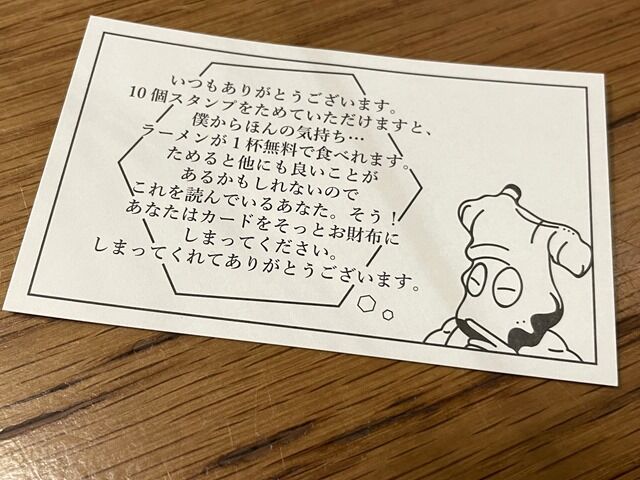 いつもありがとうございます。
10個スタンプをためていただけますと、
僕からほんの気持ち…
ラーメンが1杯無料で食べれます。
ためると他にも良いことが
あるかもしれないので
これを読んでいるあなた。そう!
あなたはカードをそっとお財布に
しまってください。
しまってくれてありがとうございます。